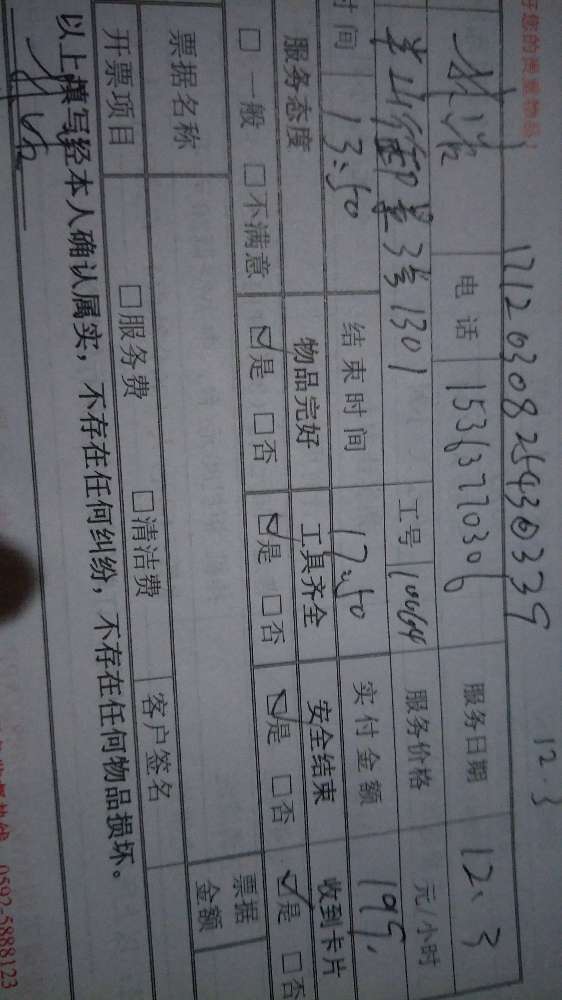 好您的贵重物品！
17120308254300339
12.3
电话 15363770306 服务日期 12、3
半山御墅3号1301 工号 10664 服务价格 元/小时
时间 13:50 结束时间 17:50 实付金额 195.
服务态度 物品完好 工具齐全 安全结束 收到卡片
□ 一般 □不满意 ☑是 □否 ☑是 □否 ☑是 □否 ☑是 □否
票据名称 票据金额
开票项目 □服务费 □清洁费 客户签名
以上填写经本人确认属实，不存在任何纠纷，不存在任何物品损坏。
0592-5888123